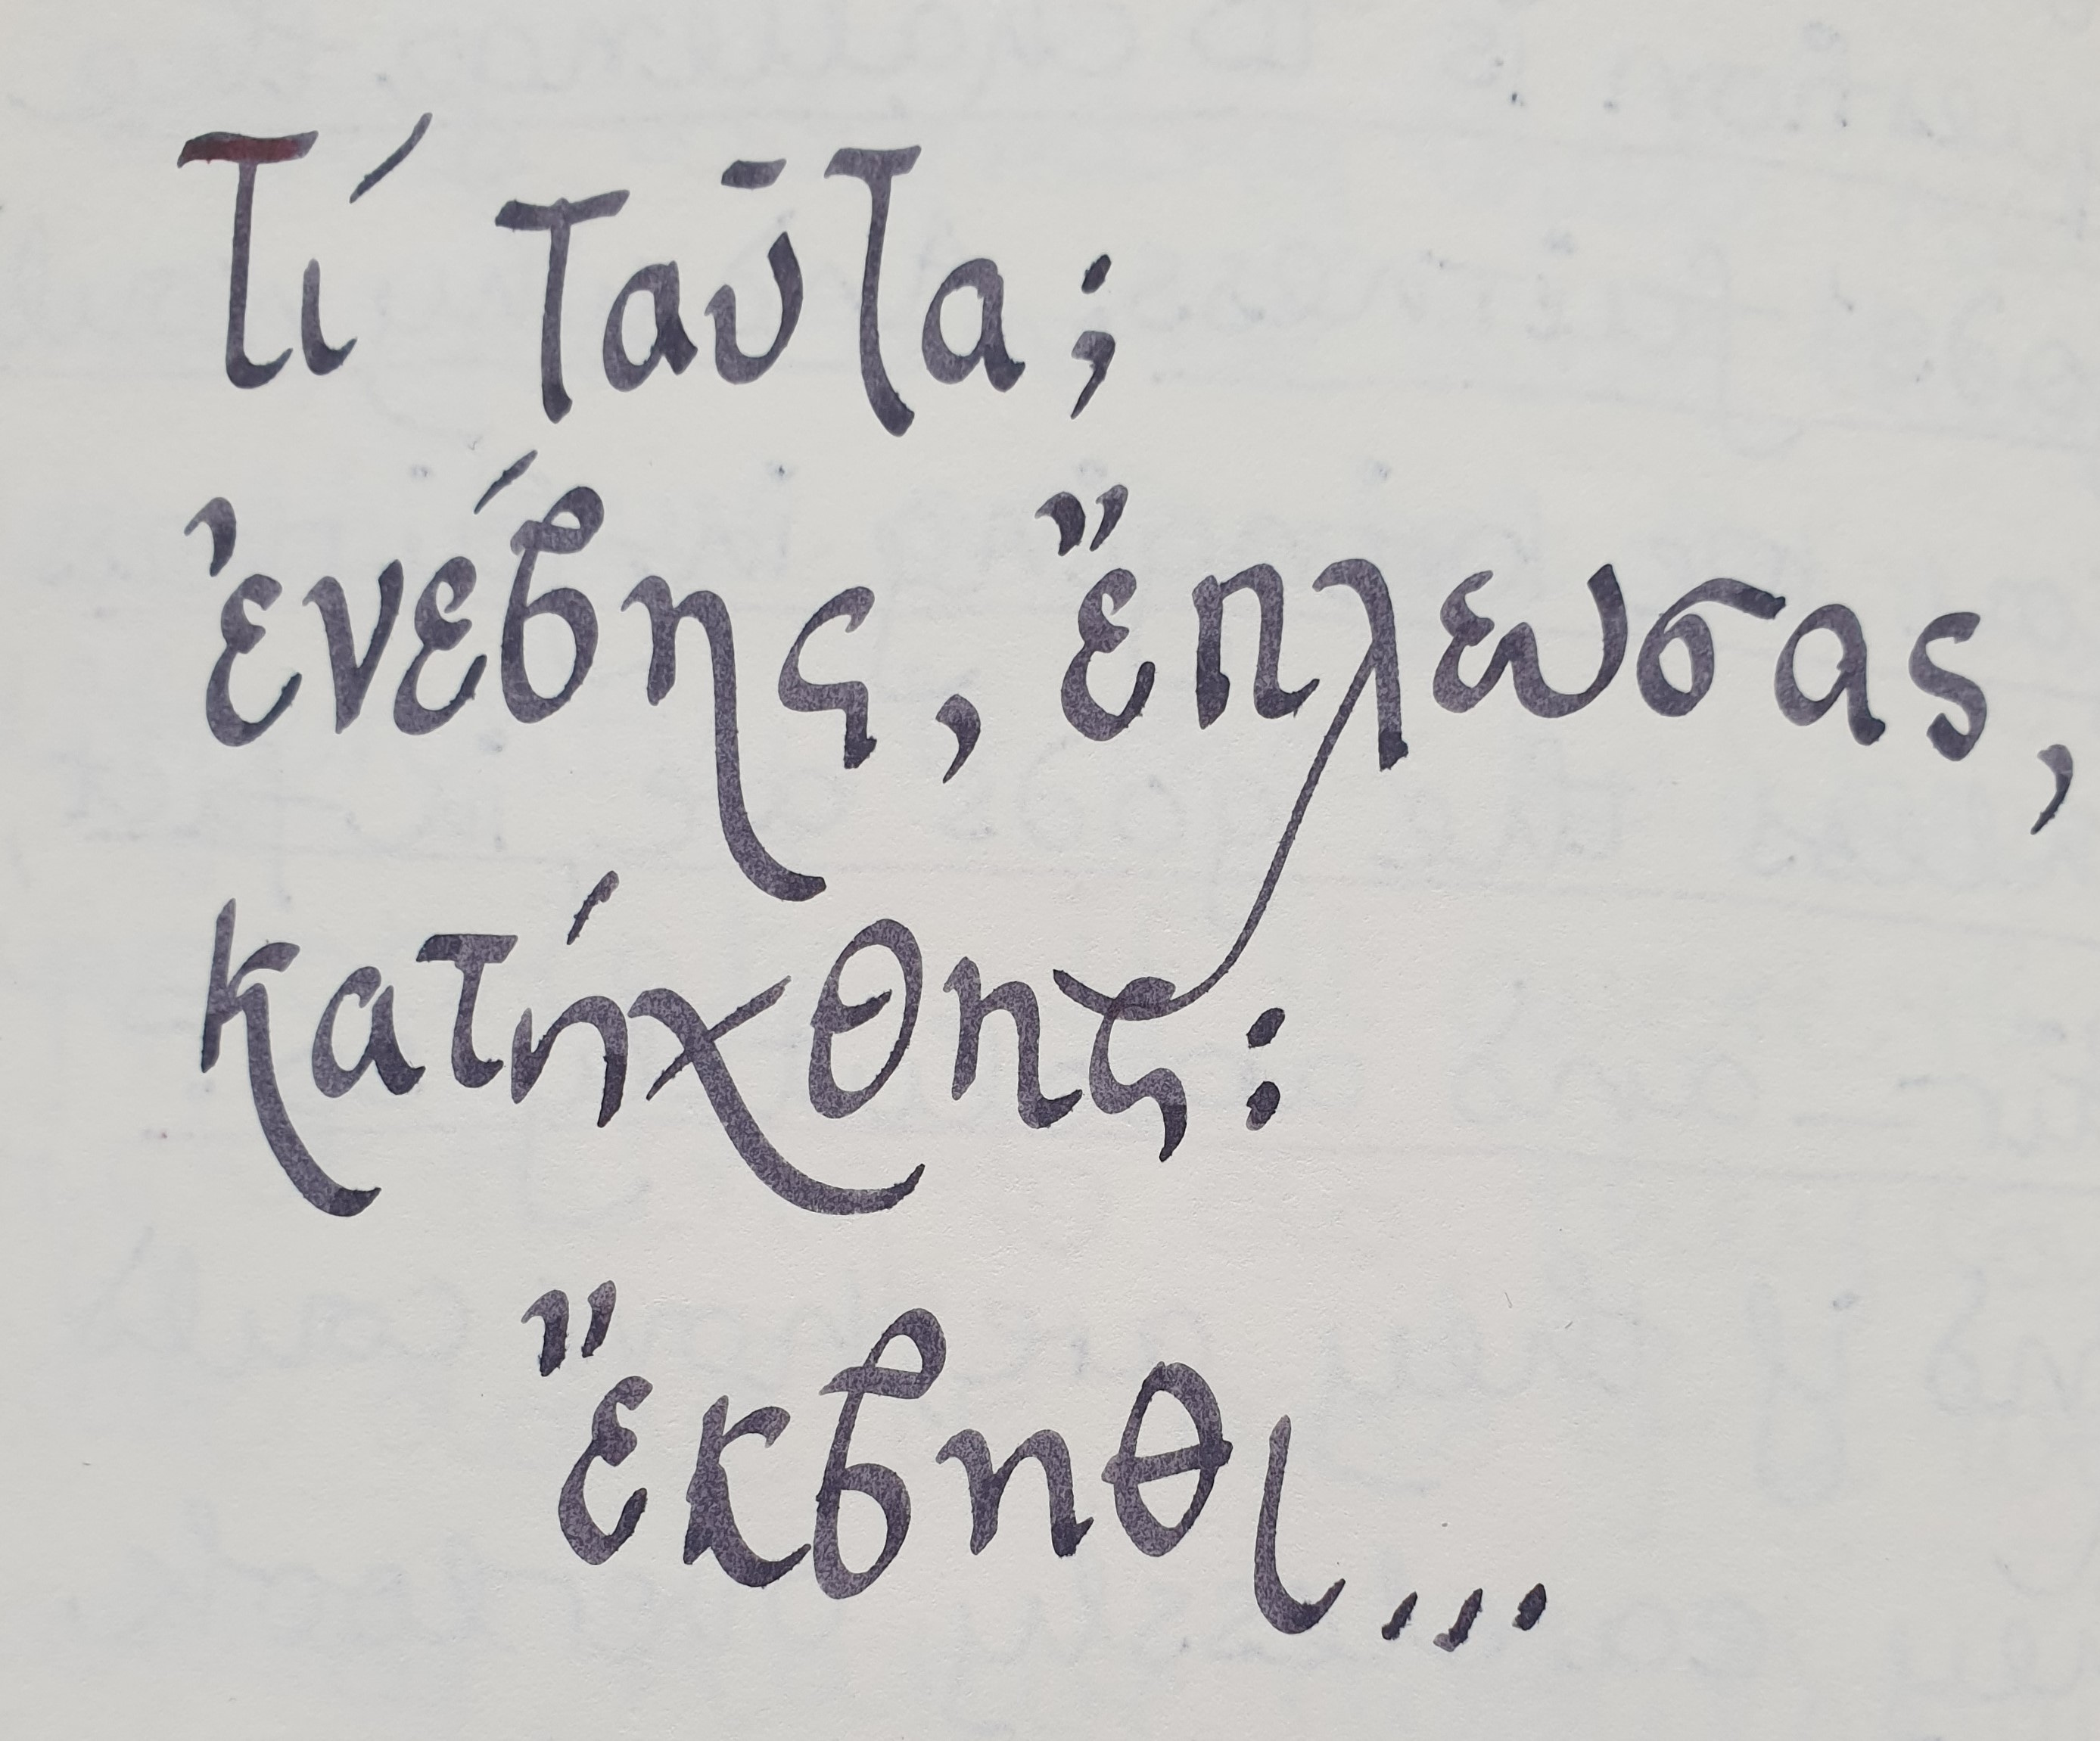 Τί ταῦτα;
ἐνέβης, ἔπλευσας,
κατήχθης:
ἔκβηθι...